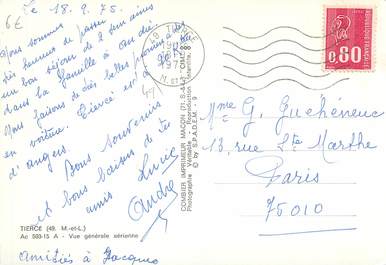 6€
Le 18.9.75.
Nous sommes
très heureux de passer
un bon séjour de 8 jours
dans la famille à
Nous faisons de très belles promenades
en voiture. Tiercé est à
d'angers.
Bons Souvenirs
et bons baisers de tes
amis Lucie
André
TIERCÉ (49. M.-et-L.)
Ac 503-15 A - Vue générale aérienne
Amitiés à Jacques
COMBIER IMPRIMEUR MACON (71-S.-&-L.)
Reproduction Interdite
© by S.P.A.D.E.M. - 9
49 TIERCE
0,80
Mme G. Gucheneuc
13, rue Ste Marthe
Paris
75010